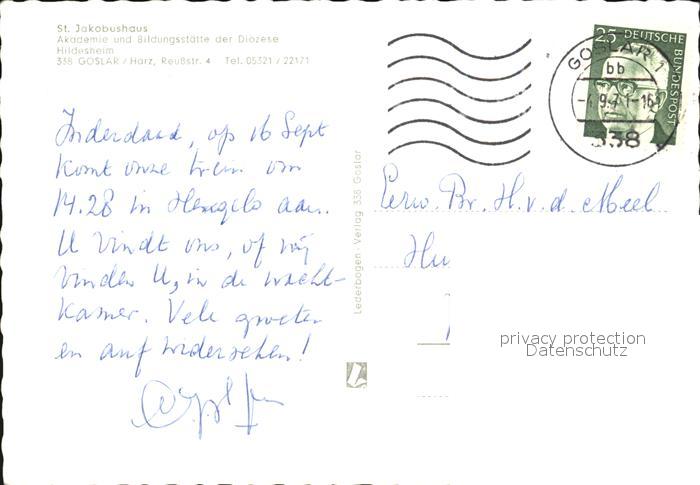 St. Jakobushaus
Akademie und Bildungsstätte der Diözese
Hildesheim
338 GOSLAR / Harz, Reußstr. 4 Tel. 05321 / 22171
Inderdaad, op 16 Sept
komt onze trein om
14.28 in Hengelo aan.
U vindt ons, of wij
vinden U, in de wacht-
kamer. Vele groeten
en auf wiedersehen!
Lederbogen-Verlag 338 Goslar
GOSLAR 1
bb
338
25 DEUTSCHE
BUNDESPOST
Eerw. Br. H. v. d. Meel
privacy protection
Datenschutz